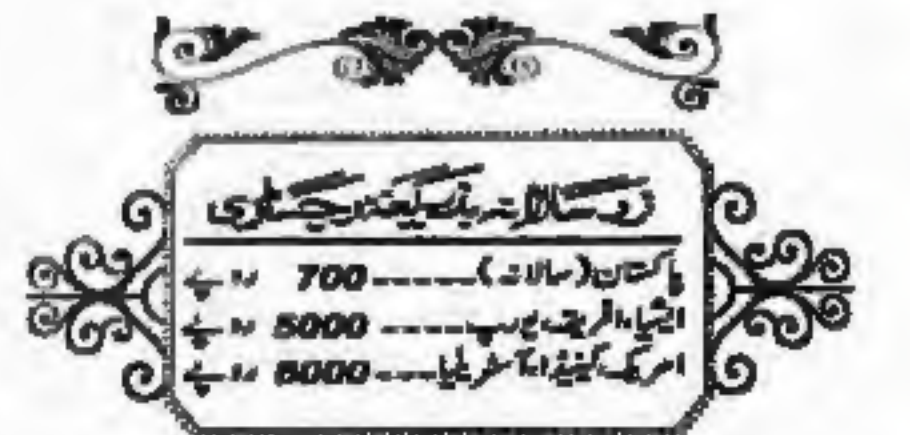 زر سالانہ بذریعہ رجسٹری
پاکستان (سالانہ) ------ 700 روپے
ایشیاء، افریقہ، یورپ ----- 5000 روپے
امریکہ، کینیڈا، آسٹریلیا ---- 6000 روپے